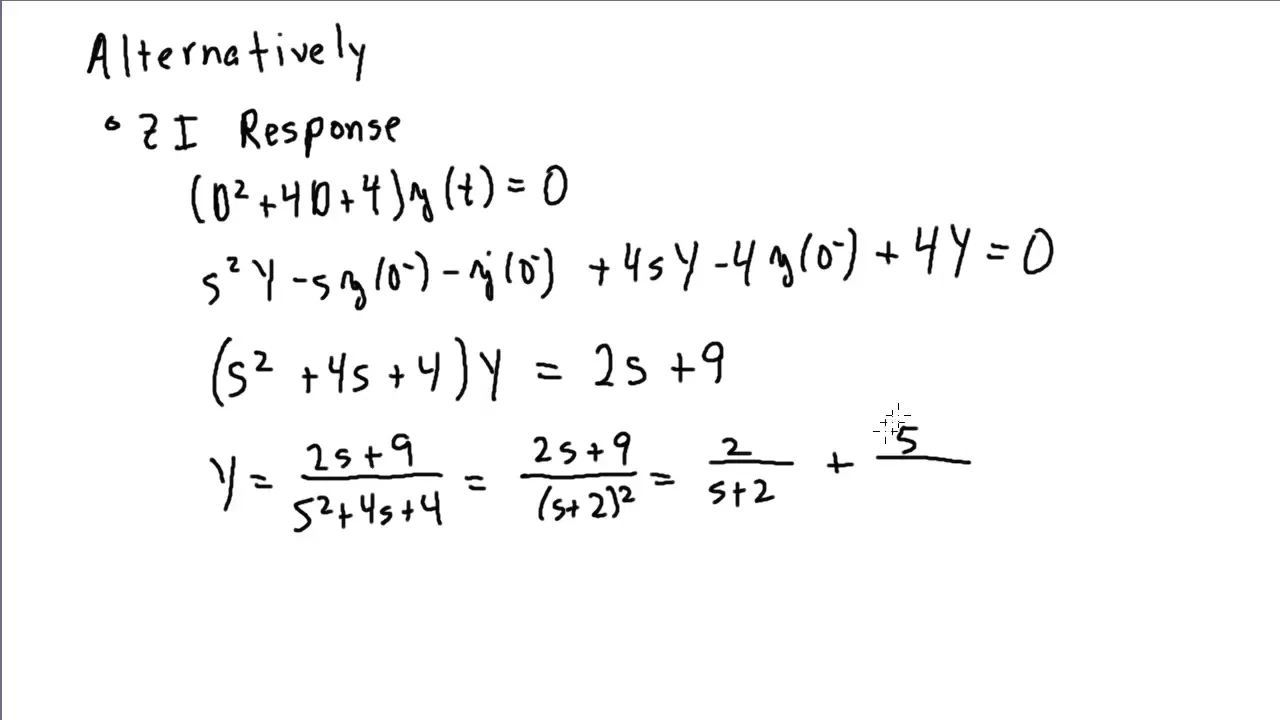 Alternatively
• ZI Response
(D²+4D+4)y(t)=0
s²Y-sy(0⁻)-ẏ(0⁻)+4sY-4y(0⁻)+4Y=0
(s²+4s+4)Y=2s+9
Y=(2s+9)/(s²+4s+4)=(2s+9)/(s+2)²=2/(s+2)+5/